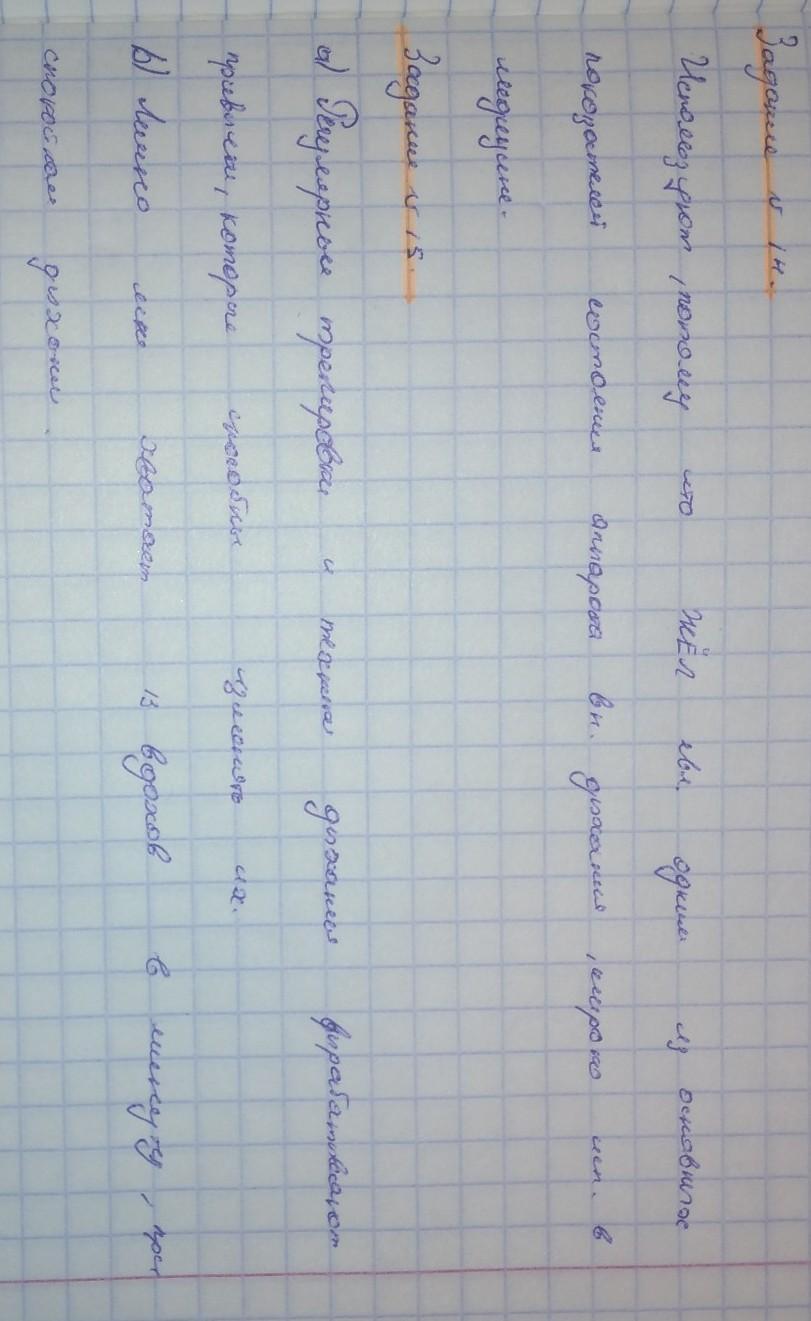 Задание № 14.
Используют, потому что ЖЁЛ явл. одним из основных
показателей состояния аппарата вн. дыхания, широко исп. в
медицине.
Задание № 15.
а) Регулярные тренировки и техника дыхания вырабатывают
привычки, которые способны изменять их.
b) Лично мне хватает 13 вдохов в минуту, при
спокойном дыхани.